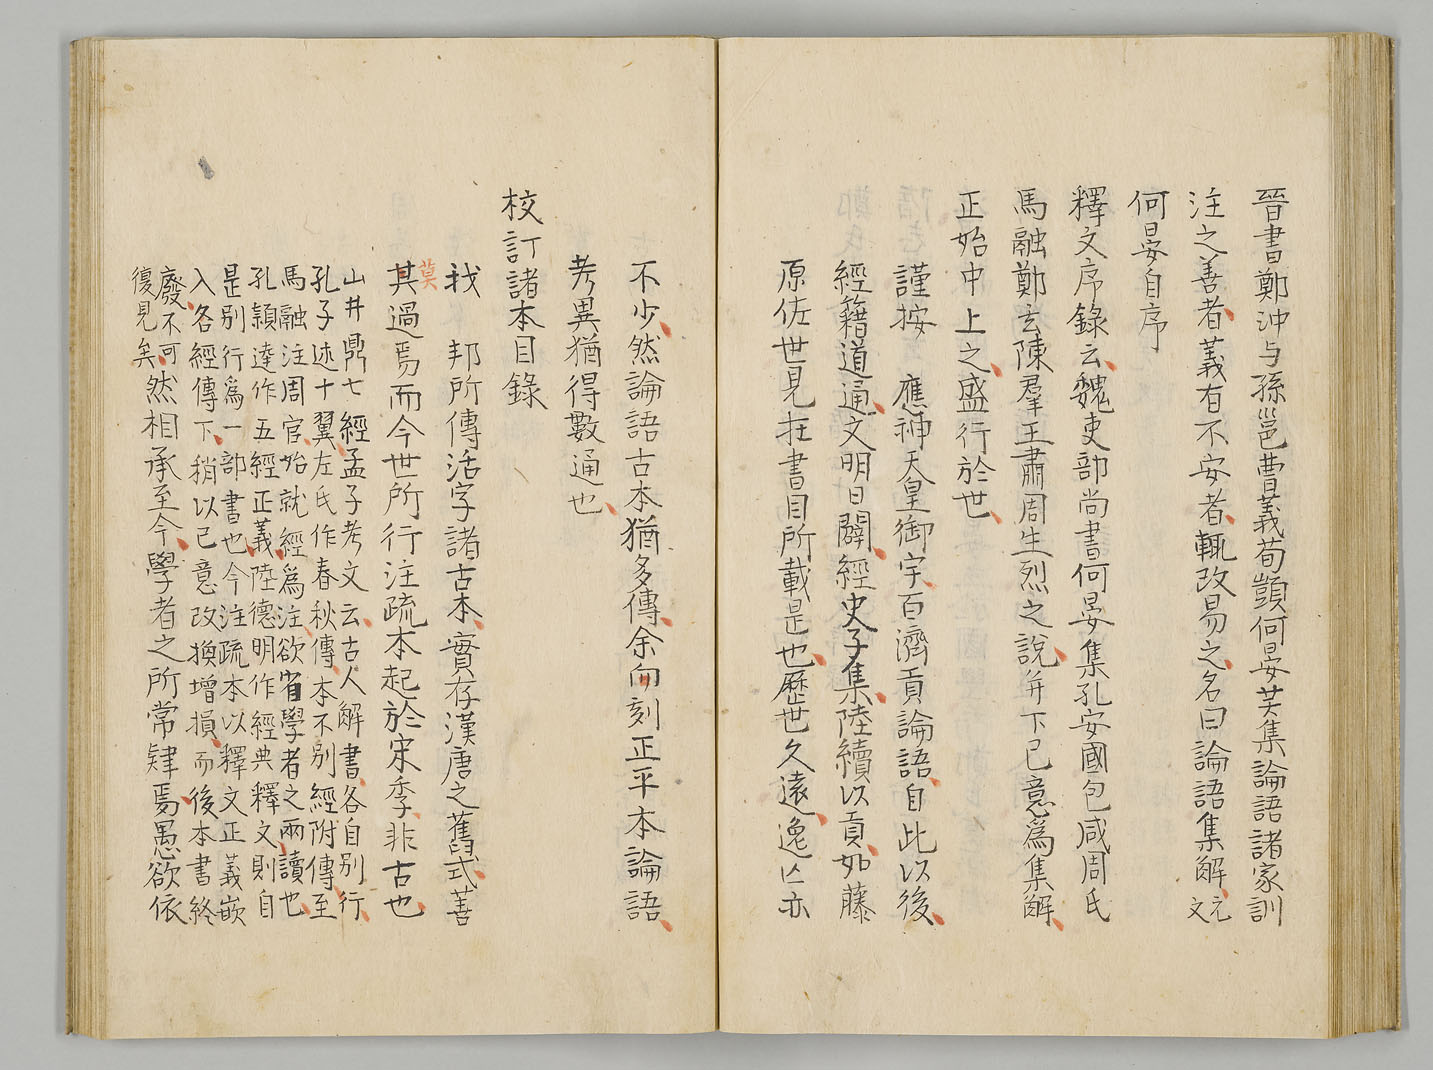 晉書鄭沖与孫邕曹羲荀顗何晏共集論語諸家訓
注之善者義有不安者輙改昜之名曰論語集解元文
何晏自序
釋文序錄云魏吏部尚書何晏集孔安國包咸周氏
馬融鄭玄陳羣王肅周生烈之說并下己意為集解
正始中上之盛行於世
謹按 應神天皇御宇百濟貢論語自此以後
經籍道通文明日闢經史子集陸續以貢如藤
原佐世見在書目所載是也歷世久遠逸亡亦
不少然論語古本猶多傳余向刻正平本論語
考異猶得數通也
校訂諸本目錄
我 邦所傳活字諸古本實存漢唐之舊式善
莫
其過焉而今世所行注疏本起於宋季非古也
山井鼎七經孟子考文云古人解書各自別行
孔子述十翼左氏作春秋傳本不別經附傳至
馬融注周官始就經為注欲省學者之兩讀也
孔穎達作五經正義陸德明作經典釋文則自
是別行為一部書也今注疏本以釋文正義嵌
入各經傳下稍以己意改換增損而後本書終
廢不可
復見矣
然相承至今學者之所常肄焉愚欲依